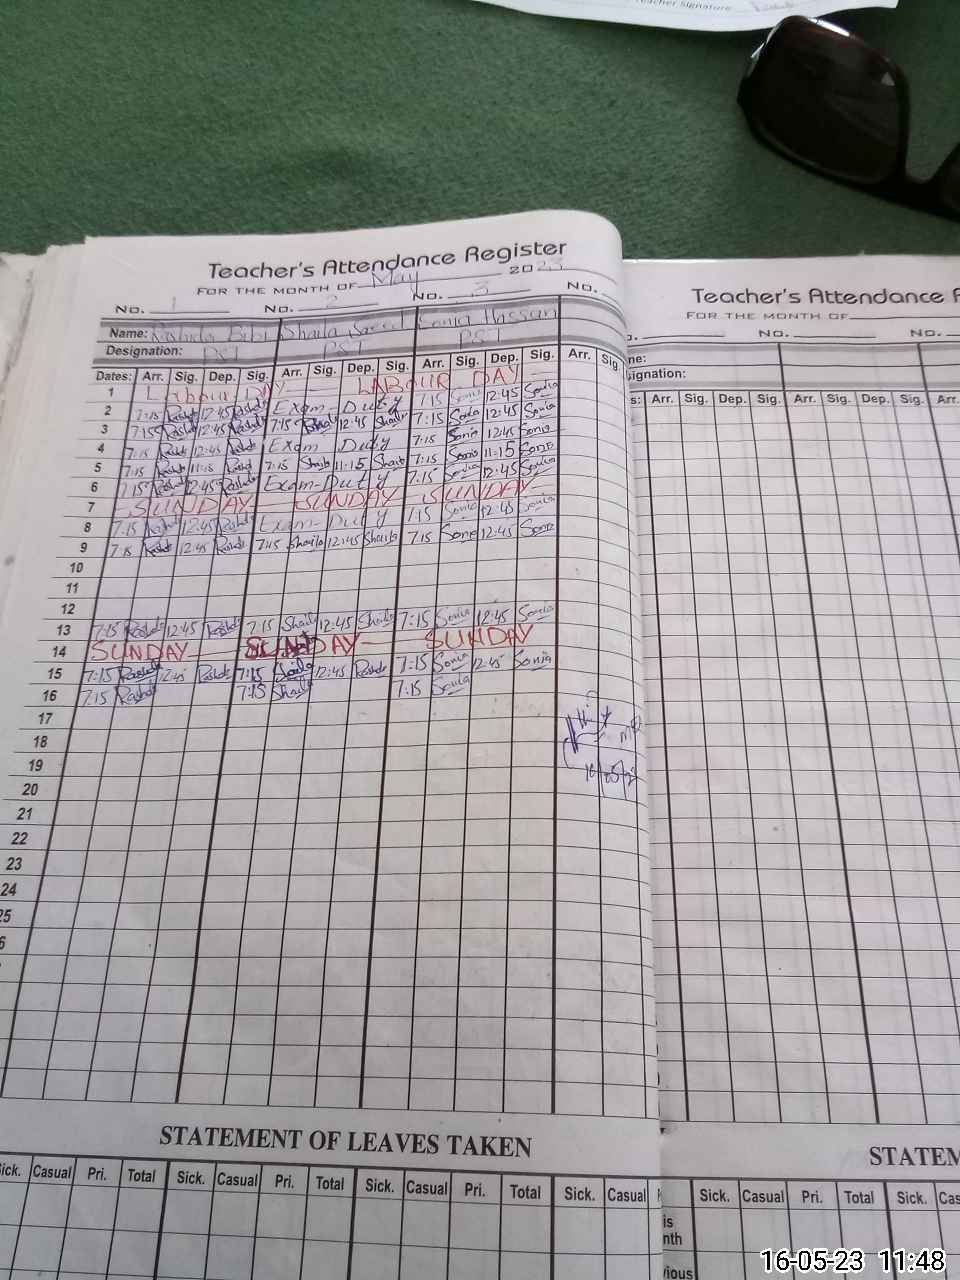 Teacher Signature
Teacher's Attendance Register
FOR THE MONTH OF May 2023
No. 1 No. 2 No. 3 No.
Name: Rashida Bibi Shaila Saeed Sonia Hassan
Designation: PST PST PST
Dates: Arr. Sig. Dep. Sig. Arr. Sig. Dep. Sig. Arr. Sig. Dep. Sig. Arr. Sig.
1 Labour Day LABOUR DAY
2 7:15 Rashda 12:45 Rashda Exam-Duty 7:15 Sonia 12:45 Sonia
3 7:15 Rashda 12:45 Rashda 7:15 Shaila 12:45 Shaila 7:15 Sonia 12:45 Sonia
4 7:15 Rashda 12:45 Rashda Exam Duty 7:15 Sonia 12:45 Sonia
5 7:15 Rashda 11:15 Rashda 7:15 Shaila 11:15 Shaila 7:15 Sonia 11:15 Sonia
6 7:15 Rashda 12:45 Rashda Exam-Duty 7:15 Sonia 12:45 Sonia
7 SUNDAY SUNDAY SUNDAY
8 7:15 Rashda 12:45 Rashda Exam-Duty 7:15 Sonia 12:45 Sonia
9 7:15 Rashda 12:45 Rashda 7:15 Shaila 12:45 Shaila 7:15 Sonia 12:45 Sonia
10
11
12
13 7:15 Rashda 12:45 Rashda 7:15 Shaila 12:45 Shaila 7:15 Sonia 12:45 Sonia
14 SUNDAY SUNDAY SUNDAY
15 7:15 Rashda 12:45 Rashda 7:15 Shaila 12:45 Rashda 7:15 Sonia 12:45 Sonia
16 7:15 Rashda 7:15 Shaila 7:15 Sonia
17
18
19
20
21
22
23
24
25
6
16/05/23
STATEMENT OF LEAVES TAKEN
Sick. Casual Pri. Total Sick. Casual Pri. Total Sick. Casual Pri. Total Sick. Casual
Teacher's Attendance
FOR THE MONTH OF
No. No.
Arr. Sig. Dep. Sig. Arr. Sig. Dep. Sig. Arr.
STATEM
Sick. Casual Pri. Total Sick. Cas
16-05-23 11:48